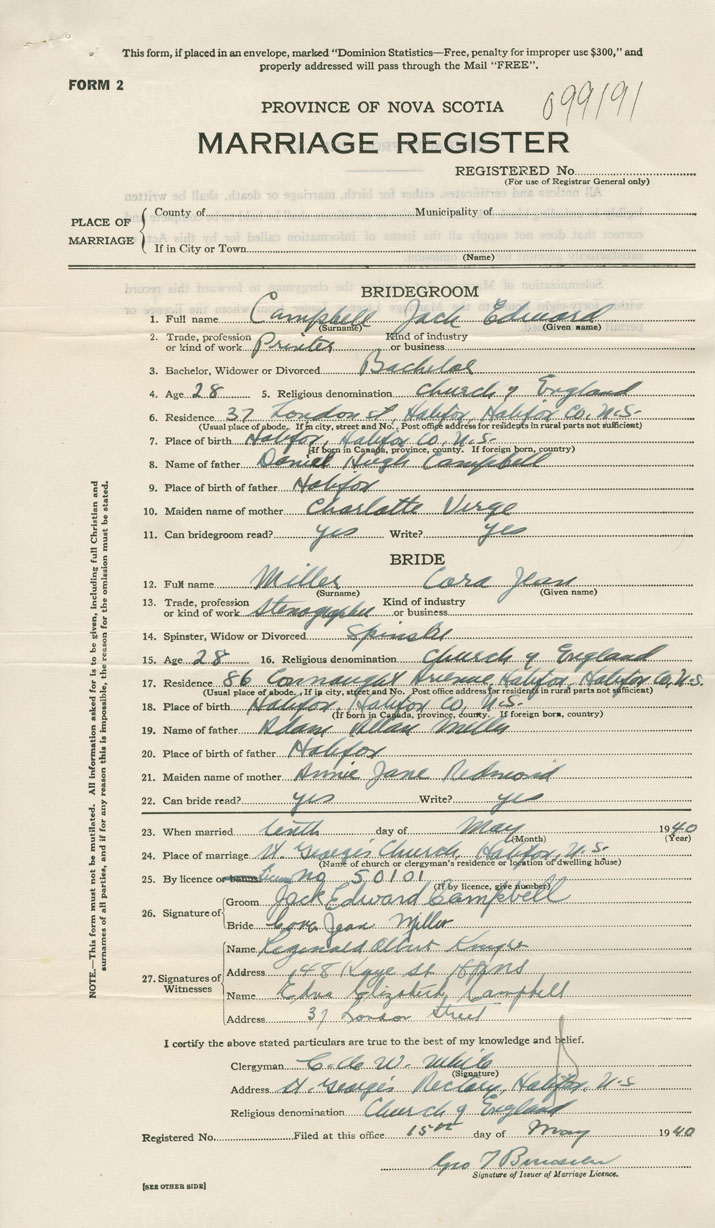 This form, if placed in an envelope, marked "Dominion Statistics—Free, penalty for improper use $300," and
properly addressed will pass through the Mail "FREE".
FORM 2
099191
PROVINCE OF NOVA SCOTIA
MARRIAGE REGISTER
REGISTERED No.
(For use of Registrar General only)
PLACE OF MARRIAGE
County of Municipality of
If in City or Town
(Name)
BRIDEGROOM
1. Full name Campbell Jack Edward
(Surname) (Given name)
2. Trade, profession or kind of work Printer Kind of industry or business
3. Bachelor, Widower or Divorced Bachelor
4. Age 28 5. Religious denomination Church of England
6. Residence 37 London St, Halifax, Halifax Co, N.S.
(Usual place of abode. If in city, street and No. Post office address for residents in rural parts not sufficient)
7. Place of birth Halifax, Halifax Co, N.S.
(If born in Canada, province, county. If foreign born, country)
8. Name of father Daniel Hugh Campbell
9. Place of birth of father Halifax
10. Maiden name of mother Charlotte Verge
11. Can bridegroom read? yes Write? yes
BRIDE
12. Full name Miller Cora Jean
(Surname) (Given name)
13. Trade, profession or kind of work Stenographer Kind of industry or business
14. Spinster, Widow or Divorced Spinster
15. Age 28 16. Religious denomination Church of England
17. Residence 86 Connaught Avenue, Halifax, Halifax Co, N.S.
(Usual place of abode. If in city, street and No. Post office address for residents in rural parts not sufficient)
18. Place of birth Halifax, Halifax Co, N.S.
(If born in Canada, province, county. If foreign born, country)
19. Name of father Adam Allan Miller
20. Place of birth of father Halifax
21. Maiden name of mother Annie Jane Redmond
22. Can bride read? yes Write? yes
23. When married tenth day of May 1940
(Month) (Year)
24. Place of marriage St George's Church, Halifax, N.S.
(Name of church or clergyman's residence or location of dwelling house)
25. By licence or banns No 50101
(If by licence, give number)
26. Signature of
Groom Jack Edward Campbell
Bride Cora Jean Miller
27. Signatures of Witnesses
Name Reginald Albert
Address 148 Kaye St Hfx NS
Name Edna Elizabeth Campbell
Address 37 London Street
I certify the above stated particulars are true to the best of my knowledge and belief.
Clergyman W. White
(Signature)
Address St. George's Rectory, Halifax, N.S
Religious denomination Church of England
Registered No. Filed at this office 15th day of May 1940
Geo
Signature of Issuer of Marriage Licence.
[SEE OTHER SIDE]
NOTE.—This form must not be mutilated. All information asked for is to be given, including full Christian and
surnames of all parties, and if for any reason this is impossible, the reason for the omission must be stated.